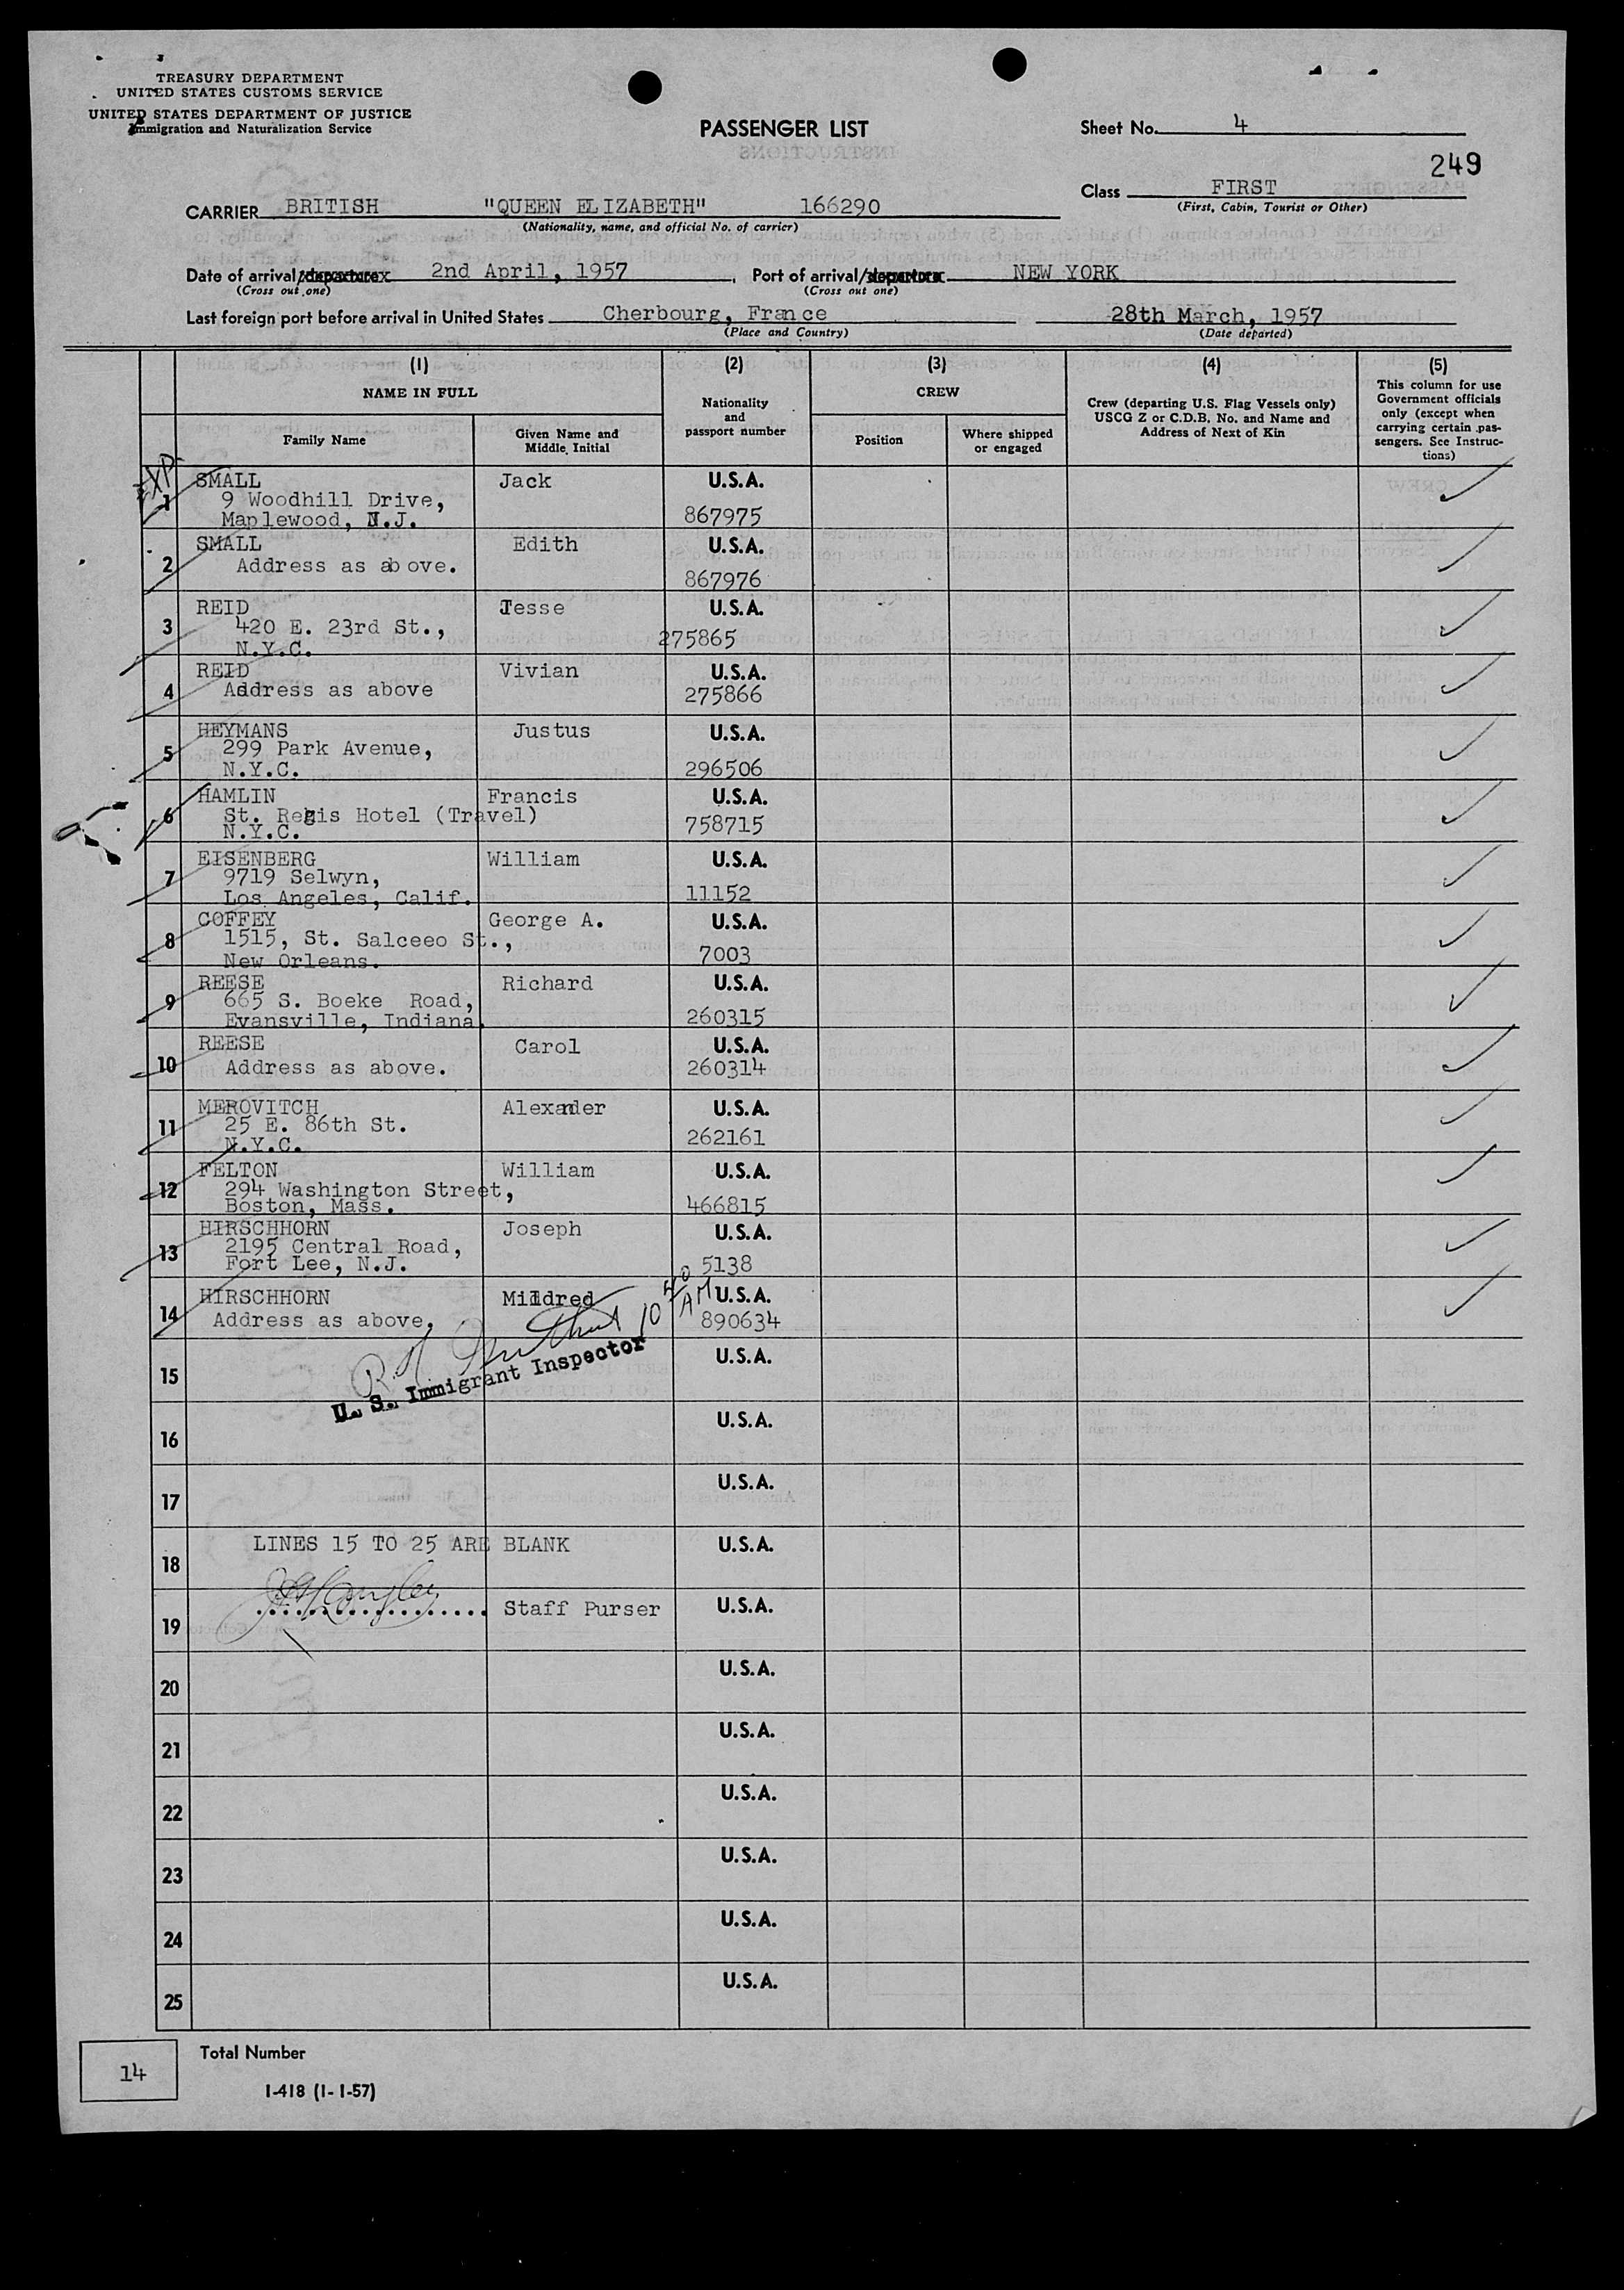 TREASURY DEPARTMENT
UNITED STATES CUSTOMS SERVICE
UNITED STATES DEPARTMENT OF JUSTICE
Immigration and Naturalization Service
PASSENGER LIST
Sheet No. 4
249
Class FIRST
(First, Cabin, Tourist or Other)
CARRIER BRITISH "QUEEN ELIZABETH" 166290
(Nationality, name, and official No. of carrier)
Date of arrival/departure 2nd April, 1957, Port of arrival/departure NEW YORK
(Cross out one) (Cross out one)
Last foreign port before arrival in United States Cherbourg, France 28th March, 1957
(Place and Country) (Date departed)
(1) (2) (3) (4) (5)
NAME IN FULL
Family Name
Given Name and
Middle Initial
Nationality
and
passport number
CREW
Position
Where shipped
or engaged
Crew (departing U.S. Flag Vessels only)
USCG Z or C.D.B. No. and Name and
Address of Next of Kin
This column for use
Government officials
only (except when
carrying certain pas-
sengers. See Instruc-
tions)
1 SMALL Jack U.S.A.
9 Woodhill Drive,
Maplewood, N.J. 867975
2 SMALL Edith U.S.A.
Address as above.
867976
3 REID Jesse U.S.A.
420 E. 23rd St.,
N.Y.C. 275865
4 REID Vivian U.S.A.
Address as above 275866
5 HEYMANS Justus U.S.A.
299 Park Avenue,
N.Y.C. 296506
6 HAMLIN Francis U.S.A.
St. Regis Hotel (Travel)
N.Y.C. 758715
7 EISENBERG William U.S.A.
9719 Selwyn,
Los Angeles, Calif. 11152
8 COFFEY George A. U.S.A.
1515, St. Salceeo St.,
New Orleans. 7003
9 REESE Richard U.S.A.
665 S. Boeke Road,
Evansville, Indiana. 260315
10 REESE Carol U.S.A.
Address as above. 260314
11 MEROVITCH Alexander U.S.A.
25 E. 86th St.
N.Y.C. 262161
12 FELTON William U.S.A.
294 Washington Street,
Boston, Mass. 466815
13 HIRSCHHORN Joseph U.S.A.
2195 Central Road,
Fort Lee, N.J. 5138
14 HIRSCHHORN Mildred U.S.A.
Address as above, 890634
10 40 AM
U. S. Immigrant Inspector
15 U.S.A.
16 U.S.A.
17 U.S.A.
18 LINES 15 TO 25 ARE BLANK U.S.A.
19 Staff Purser U.S.A.
20 U.S.A.
21 U.S.A.
22 U.S.A.
23 U.S.A.
24 U.S.A.
25 U.S.A.
14 Total Number
I-418 (1-1-57)